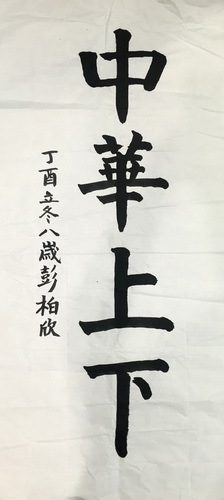 中華上下
丁酉立冬八歲彭柏欣